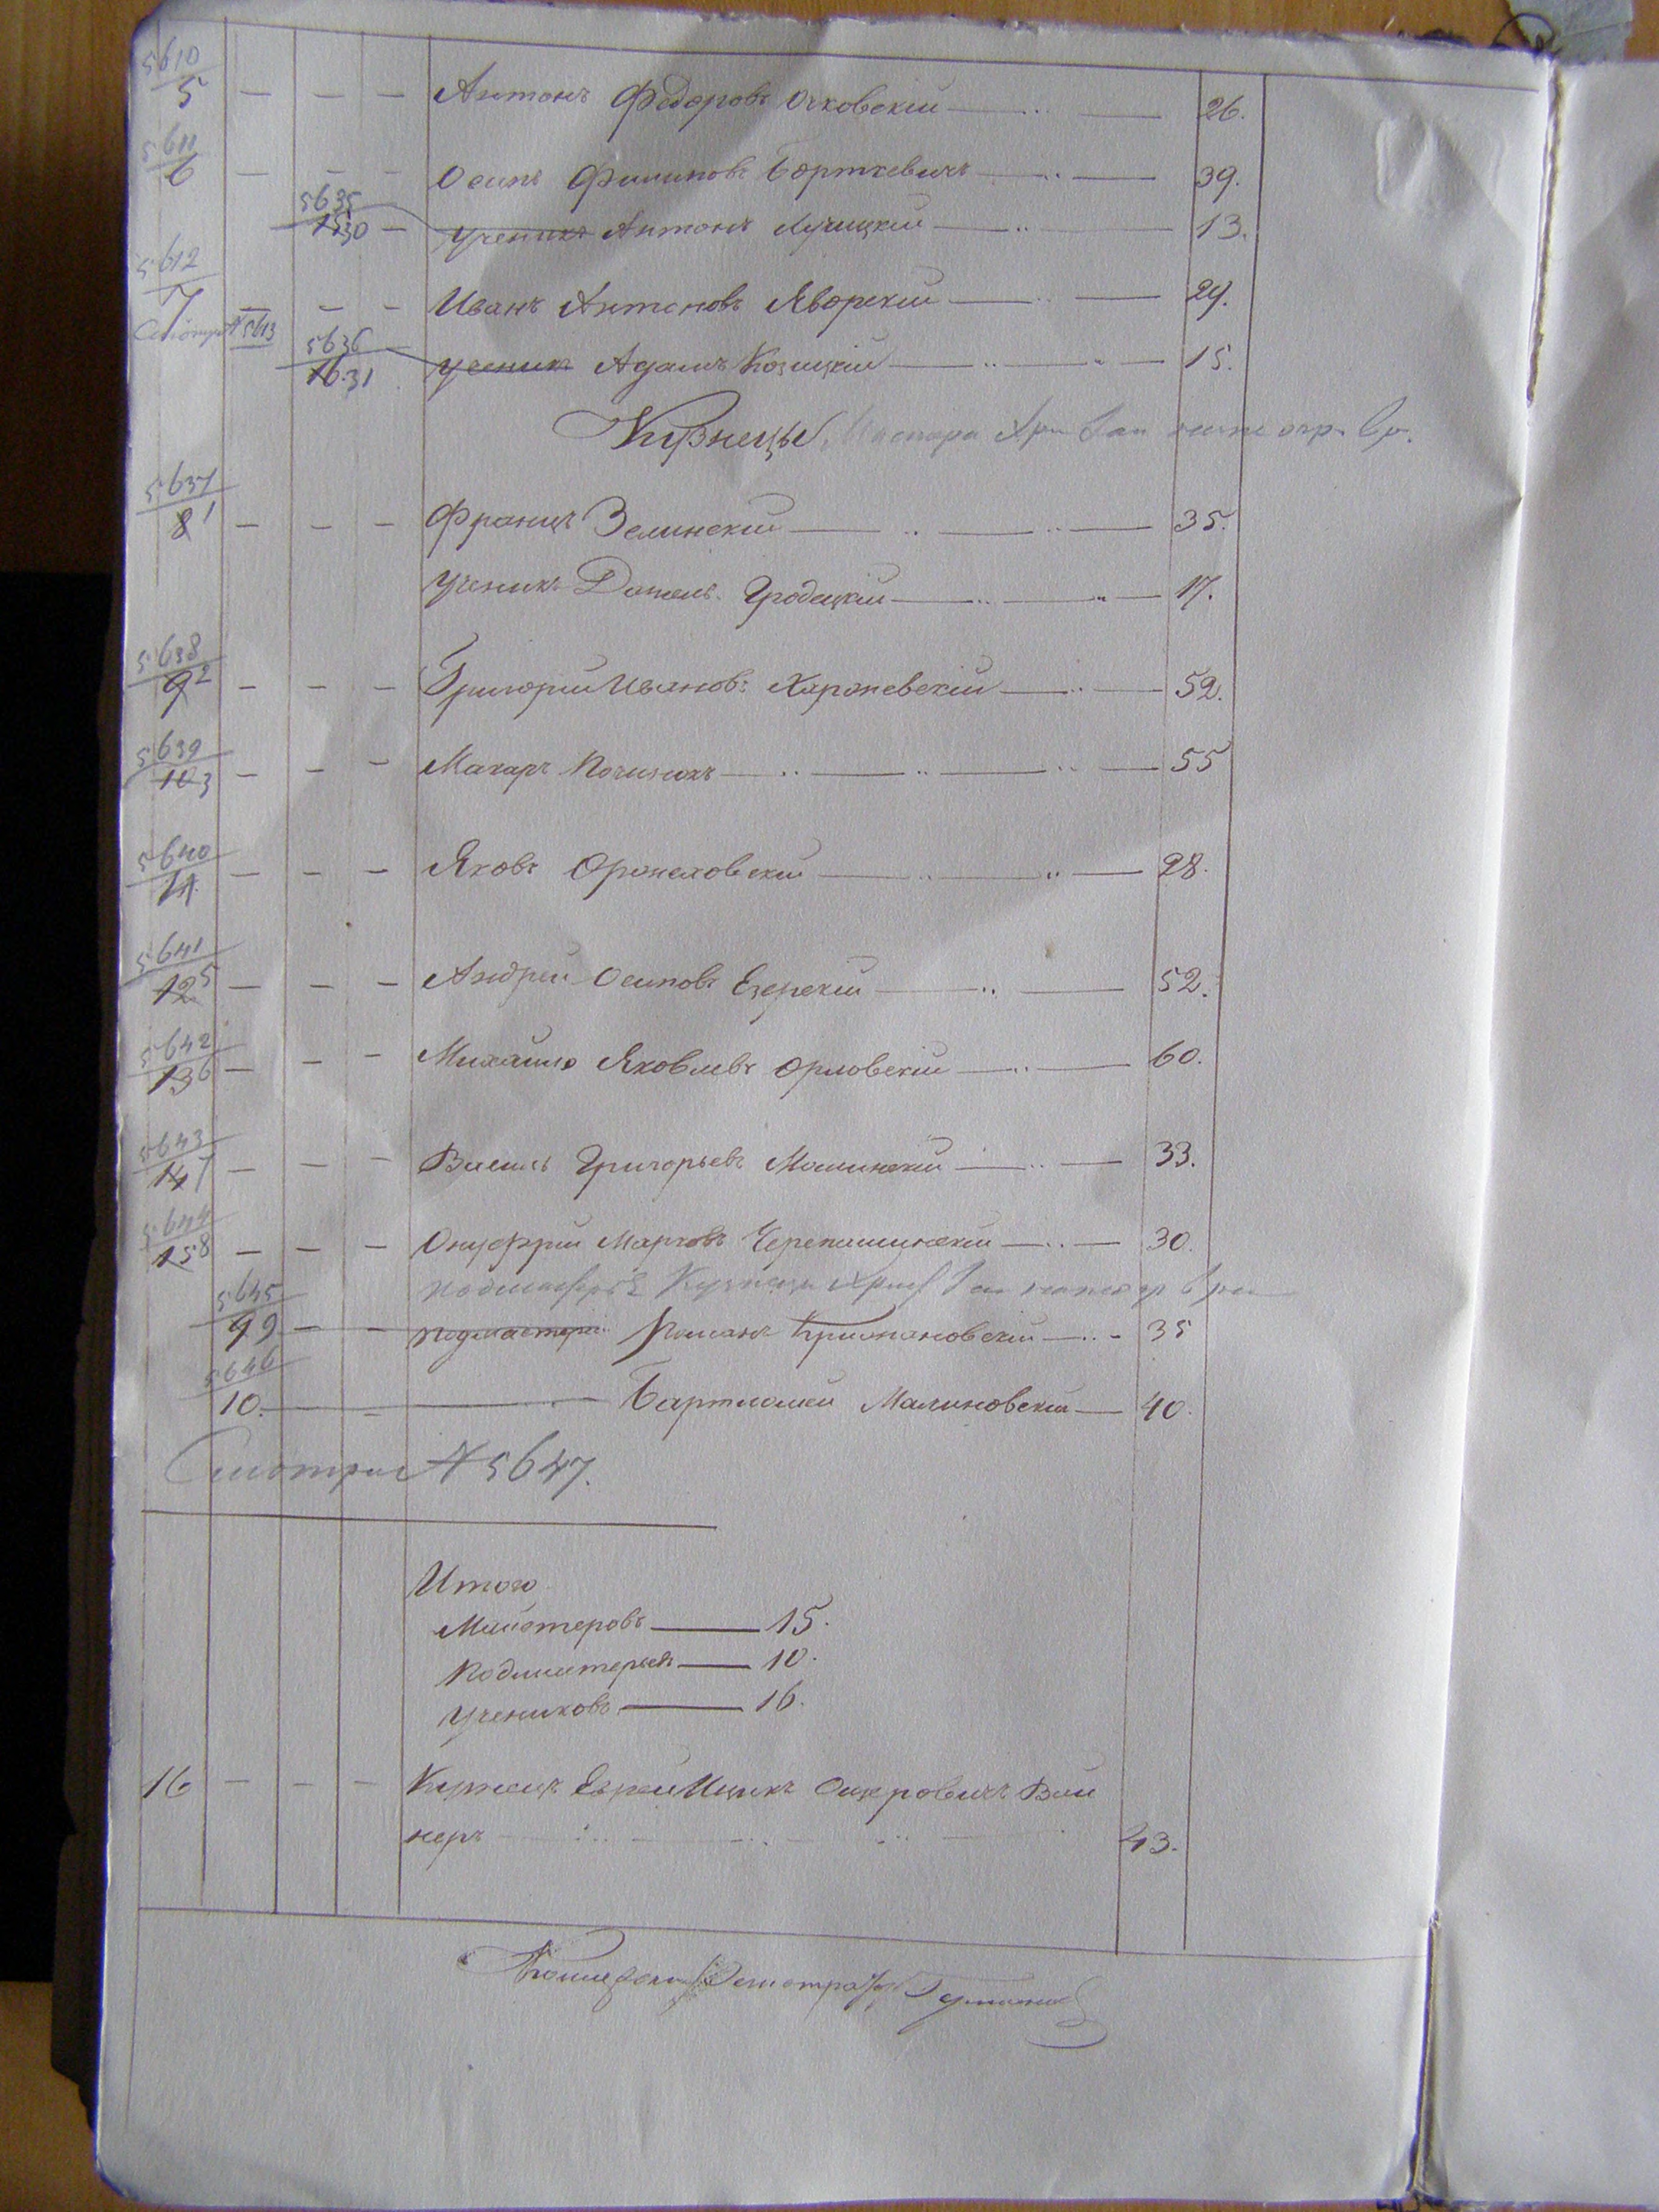 5610
5 — — — Антонъ Федоровъ Очковскій — 26.
5611
6 — — — Осипъ Филиповъ Борткевичъ — 39.
5635
15 30 — ученикъ Антонъ Лучицкій — 13.
5612
7 — — — Иванъ Антоновъ Яворскій — 29.
Смотр № 5613
5636
16. 31 ученик Адамъ Козицкій — 15.
Кузнецы Мастера
5637
8 1 — — — Францъ Зелинскій — 35.
ученикъ Данель Гродецкій — 17.
5638
9 2 — — — Григорій Иванов: Харжевскій — 52.
5639
10 3 — — — Макаръ — 55
5640
11 — — — Яковъ Оржеховскій — 28.
5641
12 5 — — — Андрей Осиповъ Езерскій — 52.
5642
13 6 — — — Михайло Яковлевъ Орловскій — 60.
5643
14 7 — — — Василь Григорьевъ Малинскій — 33.
5644
15 8 — — — Онуфрій Марковъ — 30.
подмастерья Кузнецы
5645
9 9 — — подмастерье Романъ Крижановскій — 35
5646
10. — — Бартломей Малиновскій — 40.
Смотри № 5647.
Итого
Майстеровъ — 15.
Подмастерьев — 10.
учениковъ — 16.
16 — — — Кузнецъ Еврей Ицикъ Вай
неръ — 43.